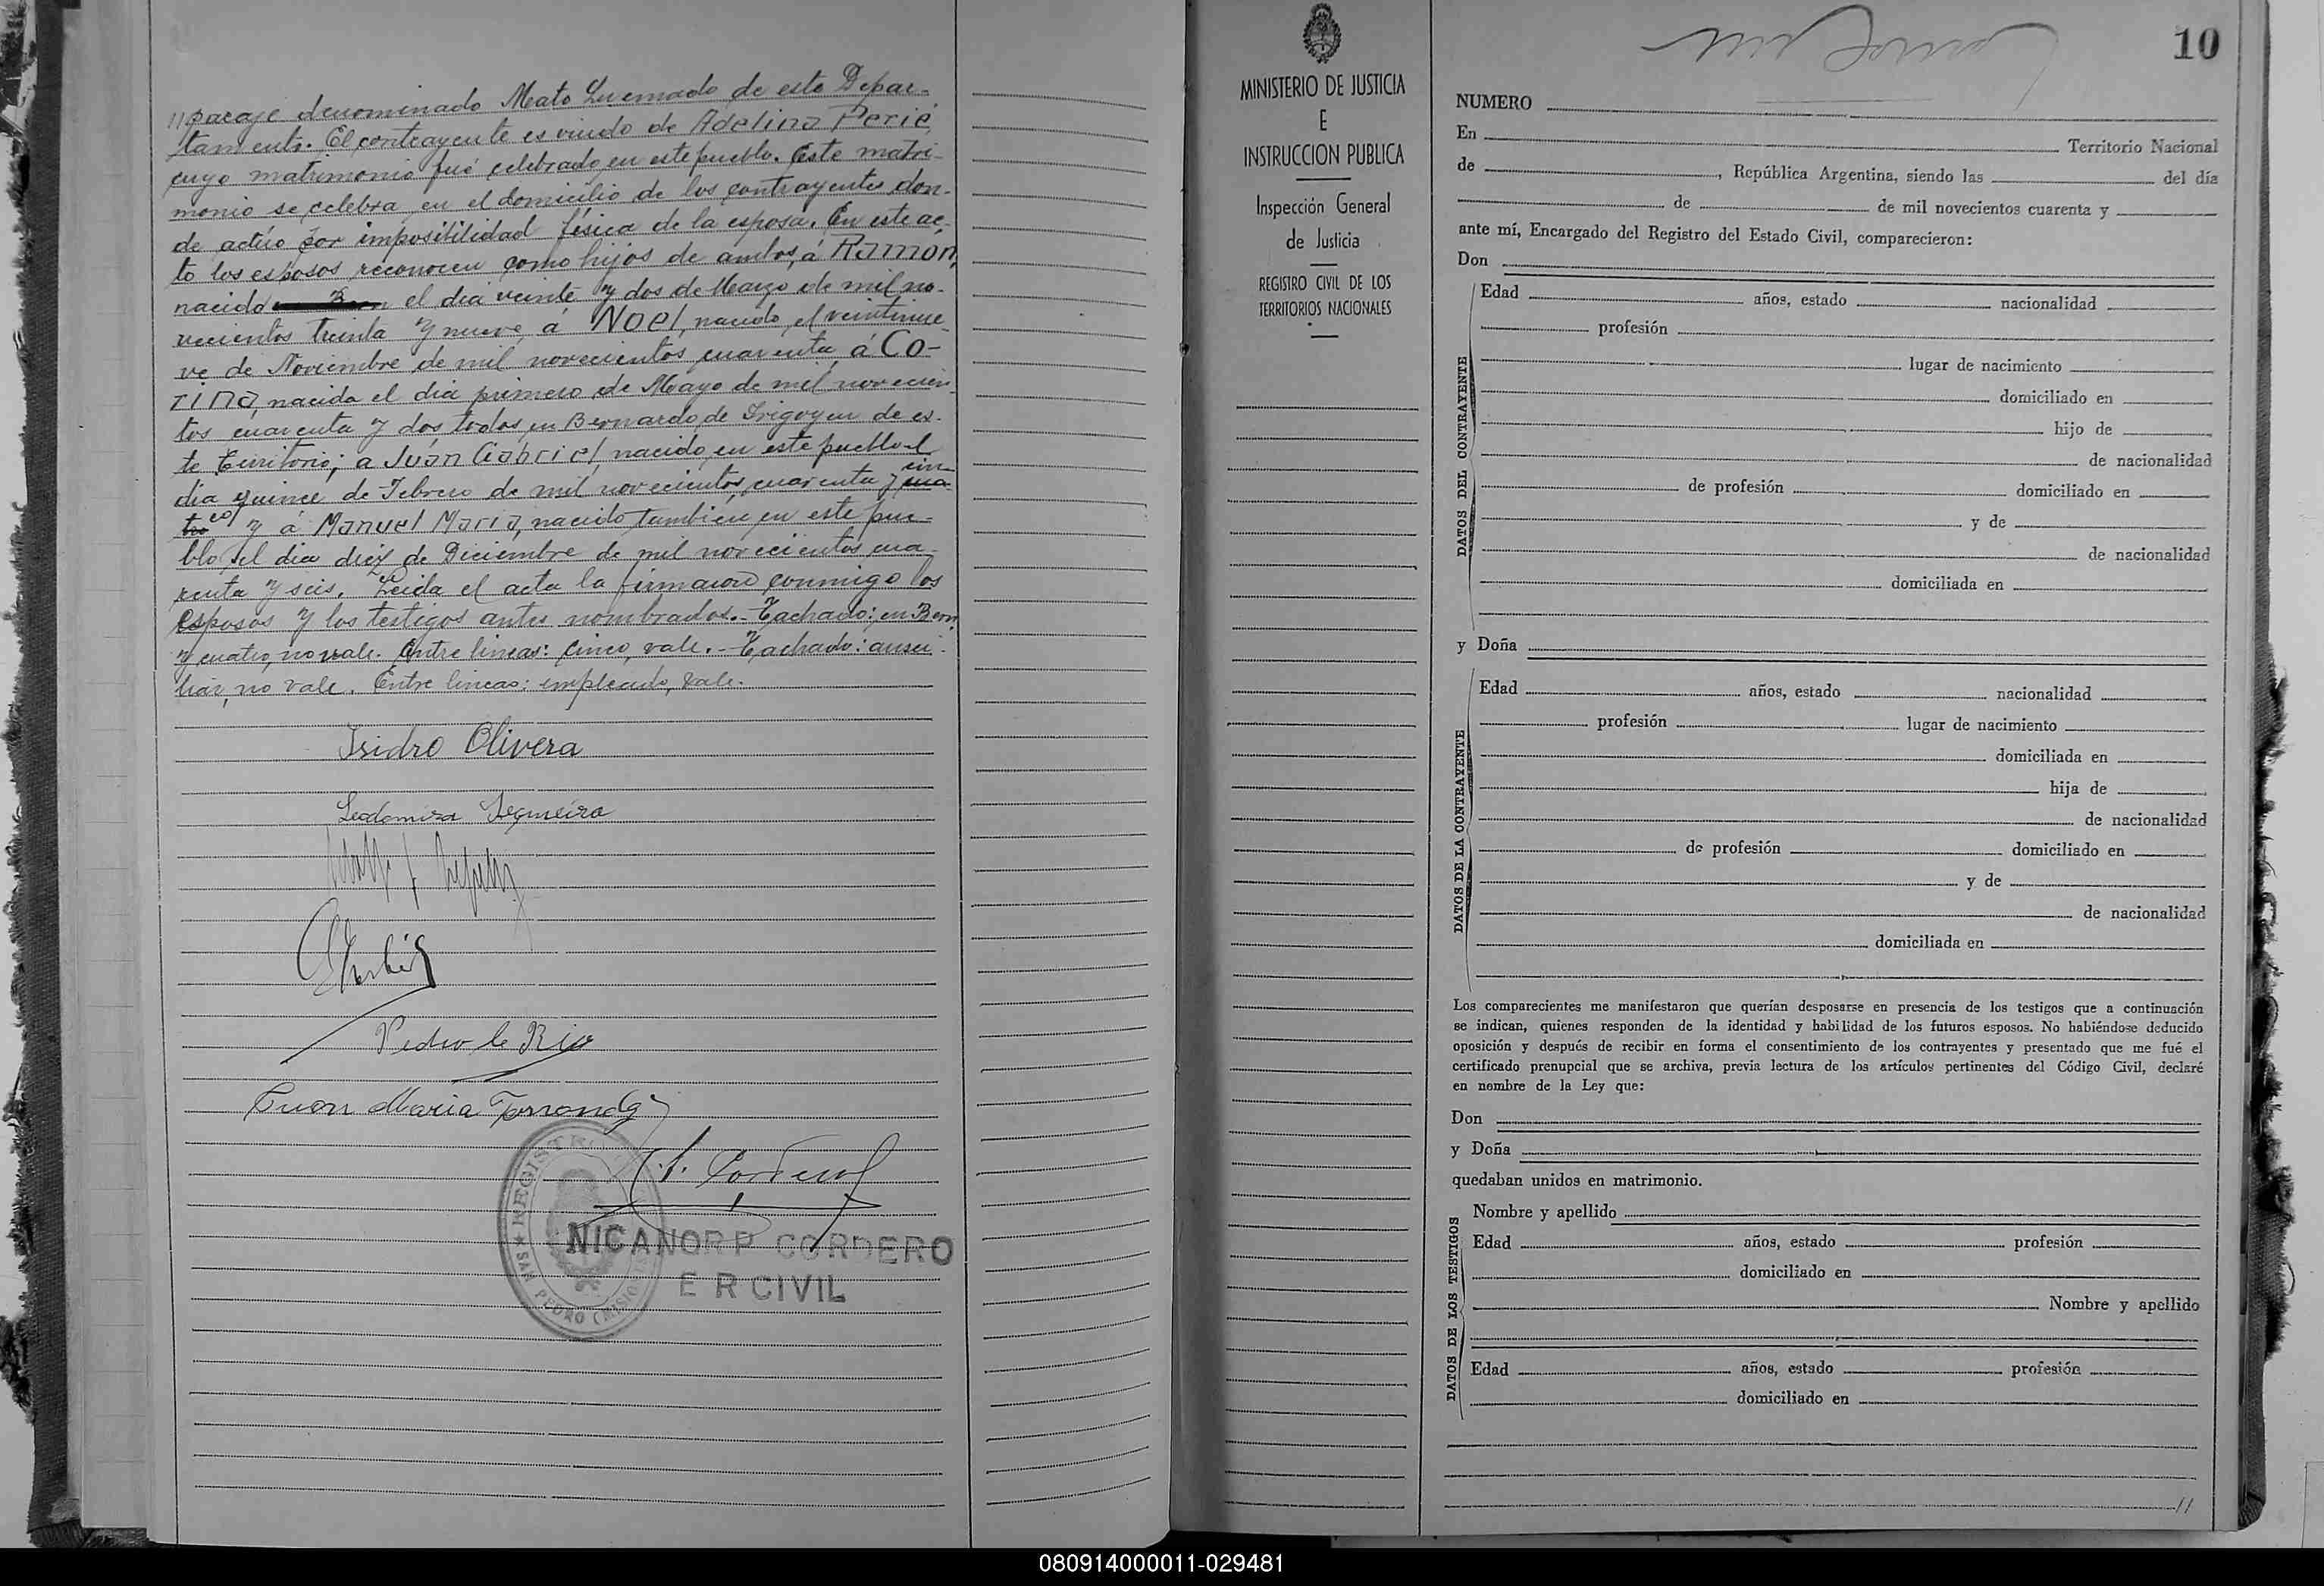 // paraje denominado Mato Quemado de este Depar-
tamento. El contrayente es viudo de Adelina Perié,
cuyo matrimonio fué celebrado en este pueblo. Este matri-
monio se celebra en el domicilio de los contrayentes don-
de actúo por imposibilidad física de la esposa. En este ac-
to los esposos reconocen como hijos de ambos, á Ramon,
nacido en Bern el dia veinte y dos de Marzo de mil no-
vecientos treinta y nueve, á Noel, nacido el veintinue-
ve de Noviembre de mil novecientos cuarenta, á Co-
rina, nacida el dia primero de Mayo de mil novecien-
tos cuarenta y dos todos en Bernardo de Irigoyen de es-
te Territorio; a Juan Gabriel, nacido en este pueblo el
dia quince de Febrero de mil novecientos cuarenta y cua- cin-
tro co y á Manuel Maria, nacido tambien en este pue-
blo el dia diez de Diciembre de mil novecientos cua-
renta y seis. Leida el acta la firmaron conmigo los
esposos y los testigos antes nombrados.- Tachado: en Bern
y cuatro, no vale. Entre lineas: cinco, vale.- Tachado:
no vale. Entre lineas: empleado, vale.
Isidro Olivera
Ledomira Sequeira
Pedro
Juan Maria
REGISTRO
SAN PEDRO (MISIONES)
NICANOR P CORDERO
E R CIVIL
MINISTERIO DE JUSTICIA
E
INSTRUCCION PUBLICA
Inspección General
de Justicia
REGISTRO CIVIL DE LOS
TERRITORIOS NACIONALES
10
NUMERO
En Territorio Nacional
de , República Argentina, siendo las del día
de de mil novecientos cuarenta y
ante mí, Encargado del Registro del Estado Civil, comparecieron:
Don
DATOS DEL CONTRAYENTE
Edad años, estado nacionalidad
profesión
lugar de nacimiento
domiciliado en
hijo de
de nacionalidad
de profesión domiciliado en
y de
de nacionalidad
domiciliada en
y Doña
DATOS DE LA CONTRAYENTE
Edad años, estado nacionalidad
profesión lugar de nacimiento
domiciliada en
hija de
de nacionalidad
de profesión domiciliado en
y de
de nacionalidad
domiciliada en
Los comparecientes me manifestaron que querían desposarse en presencia de los testigos que a continuación
se indican, quienes responden de la identidad y habilidad de los futuros esposos. No habiéndose deducido
oposición y después de recibir en forma el consentimiento de los contrayentes y presentado que me fué el
certificado prenupcial que se archiva, previa lectura de los artículos pertinentes del Código Civil, declaré
en nombre de la Ley que:
Don
y Doña
quedaban unidos en matrimonio.
DATOS DE LOS TESTIGOS
Nombre y apellido
Edad años, estado profesión
domiciliado en
Nombre y apellido
Edad años, estado profesión
domiciliado en
//
080914000011-029481